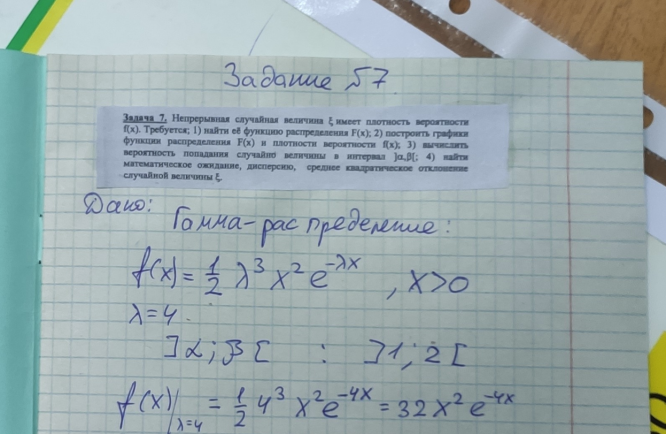 Задание №7
Задача 7. Непрерывная случайная величина ξ имеет плотность вероятности
f(x). Требуется; 1) найти её функцию распределения F(x); 2) построить графики
функции распределения F(x) и плотности вероятности f(x); 3) вычислить
вероятность попадания случайно величины в интервал ]α,β[; 4) найти
математическое ожидание, дисперсию, среднее квадратическое отклонение
случайной величины ξ.
Дано:
Гамма-распределение:
f(x) = 1/2 λ³ x² e^{-λx}, x>0
λ=4.
]α; β[ : ]1; 2[
f(x)|_{λ=4} = 1/2 4³ x² e^{-4x} = 32x² e^{-4x}